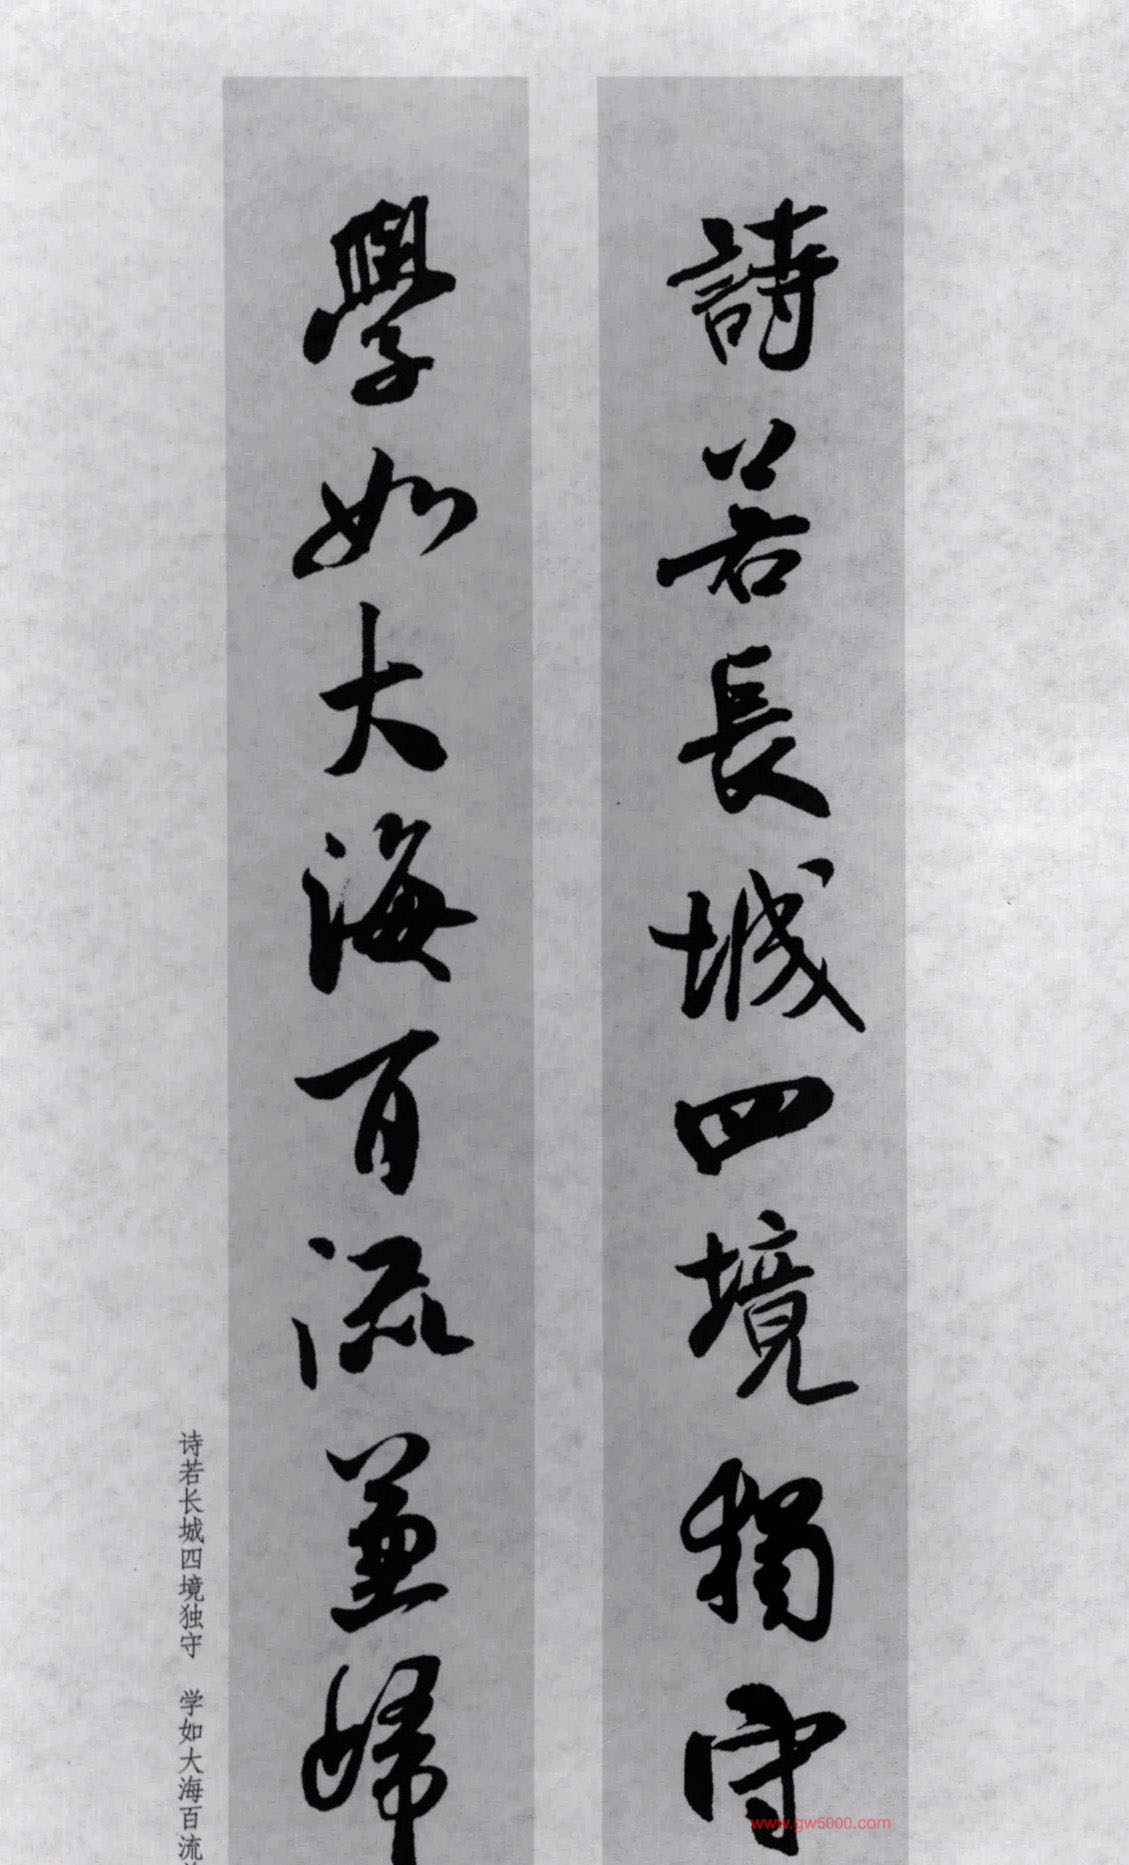 詩若長城四境獨守
學如大海百流兼歸
诗若长城四境独守 学如大海百流
www.gw5000.com